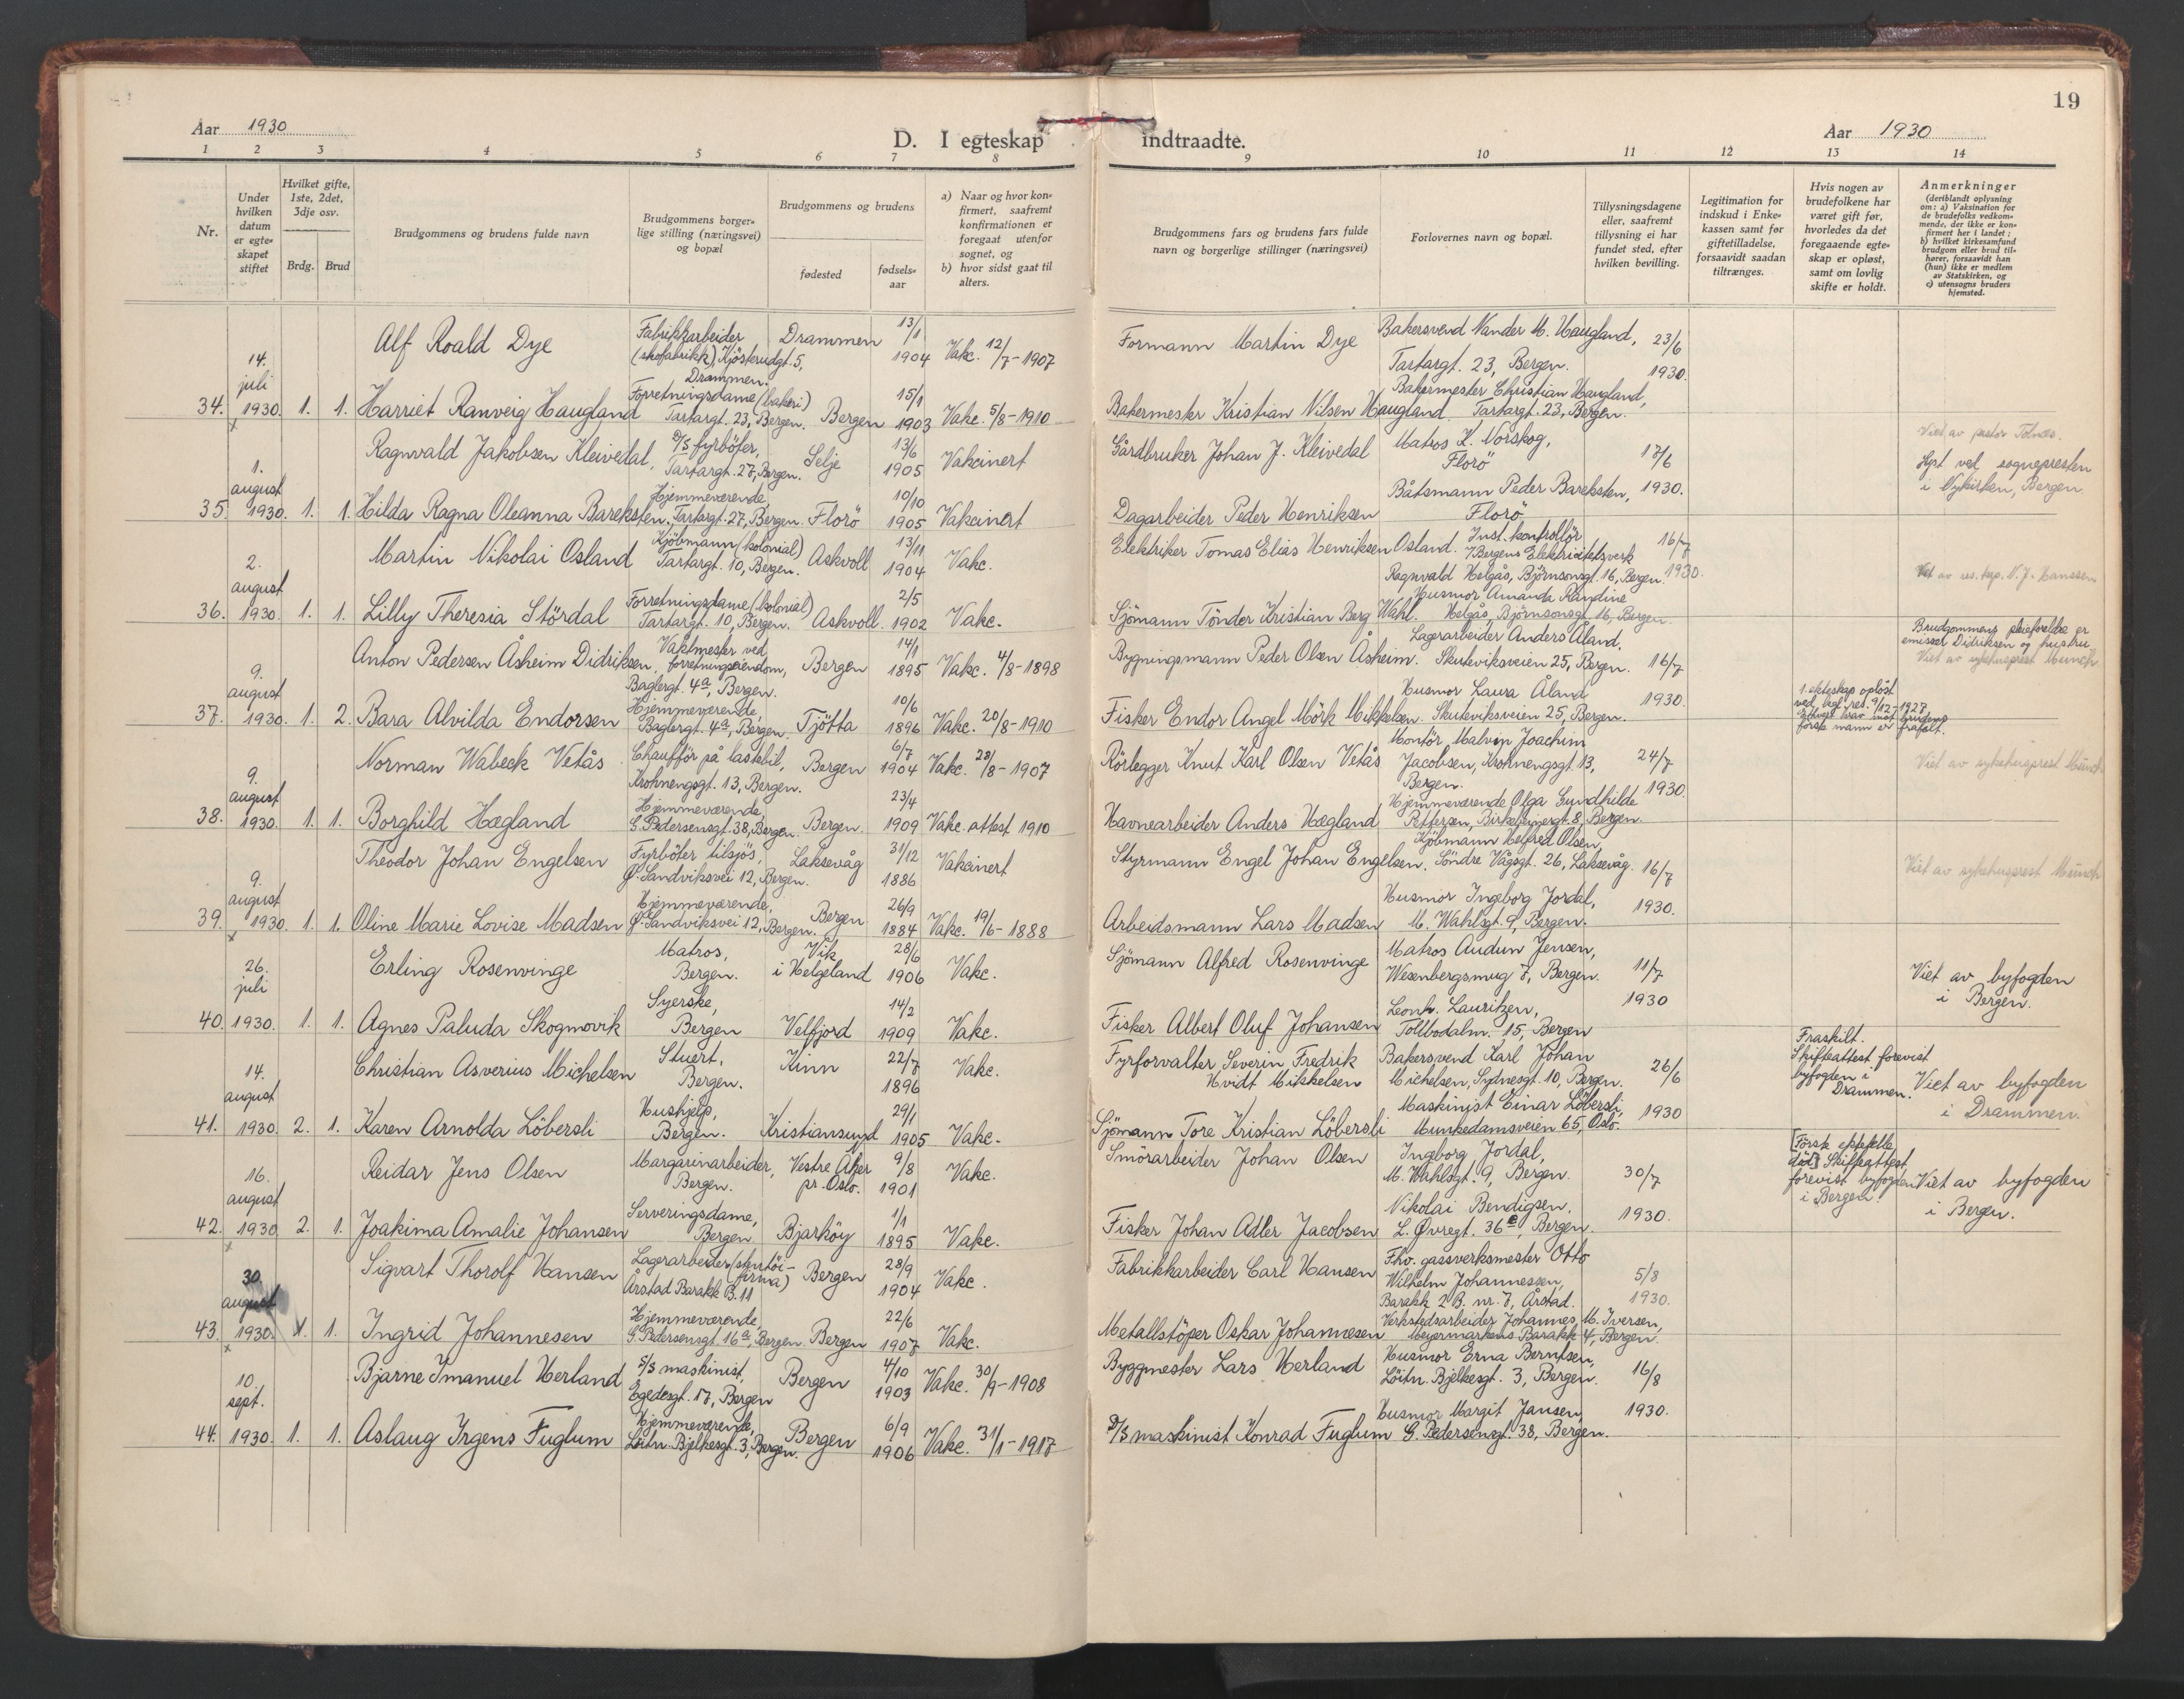 19
Aar 1930
D. I egteskap indtraadte.
Aar 1930
1 2 3 4 5 6 7 8 9 10 11 12 13 14
Nr.
Under hvilken datum er egte-skapet stiftet
Hvilket gifte, 1ste, 2det, 3dje osv.
Brdg. Brud
Brudgommens og brudens fulde navn
Brudgommens borger-lige stilling (næringsvei) og bopæl
Brudgommens og brudens
fødested
fødsels-aar
a) Naar og hvor kon-firmert, saafremt konfirmationen er foregaat utenfor sognet, og
b) hvor sidst gaat til alters.
Brudgommens fars og brudens fars fulde navn og borgerlige stillinger (næringsvei)
Forlovernes navn og bopæl.
Tillysningsdagene eller, saafremt tillysning ei har fundet sted, efter hvilken bevilling.
Legitimation for indskud i Enke-kassen samt før giftetilladelse, forsaavidt saadan tiltrænges.
Hvis nogen av brudefolkene har været gift før, hvorledes da det foregaaende egte-skap er opløst, samt om lovlig skifte er holdt.
Anmerkninger (deriblandt oplysning om: a) Vaksination for de brudefolks vedkom-mende, der ikke er kon-firmert her i landet; b) hvilket kirkesamfund brudgom eller brud til-hører, forsaavidt han (hun) ikke er medlem av Statskirken, og c) utensogns bruders hjemsted.
34. 14. juli 1930. 1. 1.
Alf Roald Dye
Fabrikkarbeider (skofabrikk), Kjösterudgt. 5, Drammen.
Drammen 13/1 1904 Vakc. 12/7-1907
Formann Martin Dye
Bakersvend Nander M. Haugland, Tartargt. 23, Bergen.
23/6 1930.
Harriet Ranveig Haugland
Forretningsdame (bakeri) Tartargt. 23, Bergen.
Bergen 15/1 1903 Vakc. 5/8-1910
Bakermester Kristian Nilsen Haugland
Bakermester Christian Haugland, Tartargt. 23, Bergen.
35. 1. august 1930. 1. 1.
Ragnvald Jakobsen Kleivedal,
D/S fyrböter, Tartargt. 27, Bergen.
Selje 13/6 1905 Vakcinert
Gårdbruker Johan J. Kleivedal
Matros K. Norskog, Florö
17/6 1930.
Viet av pastor Tolnæs.
Lyst ved sognepresten i Nykirken, Bergen
Hilda Ragna Oleanna Bareksten.
Hjemmeværende, Tartargt. 27, Bergen.
Florö 10/10 1905 Vakcinert
Dagarbeider Peder Henriksen
Båtsmann Peder Bareksten, Florö
36. 2. august 1930. 1. 1.
Martin Nikolai Osland
Kjöbmann (kolonial) Tartargt. 10, Bergen.
Askvoll 13/11 1904 Vakc.
Elektriker Tomas Elias Henriksen Osland.
Inst. kontrollör v/Bergens Elektricitetsverk Ragnvald Helgås, Björnsonsgt. 16, Bergen.
16/7 1930.
Viet av res. kap. N. J. Hanssen
Lilly Theresia Stördal
Forretningsdame (kolonial) Tartargt. 10, Bergen.
Askvoll. 2/5 1902 Vakc.
Sjömann Tönder Kristian Berg Wahl.
Husmor Amanda Randine Helgås, Björnsonsgt. 16, Bergen.
37. 9. august 1930. 1. 2.
Anton Pedersen Åsheim Didriksen.
Vaktmester ved forretningseiendom, Baglergt. 4a, Bergen.
Bergen 14/1 1895 Vakc. 4/8-1898
Bygningsmann Peder Olsen Åsheim.
Lagerarbeider Anders Åland, Skuteviksveien 25, Bergen.
16/7 1930.
Brudgommens pleieforeldre er emissær Didriksen og hustru
Viet av sykehusprest Münch.
Bara Alvilda Endorsen
Hjemmeværende, Baglergt. 4a, Bergen.
Tjötta 10/6 1896 Vakc. 20/8-1910
Fisker Endor Angel Mörk Mikkelsen.
Husmor Laura Åland Skuteviksveien 25, Bergen.
1. ekteskap oplöst ved kgl. res. 9/12-1927.
Ethvert krav mot brudens förste mann er frafalt.
38. 9. august 1930. 1. 1.
Norman Wabeck Vetås
Chaufför på lastebil, Krohnengsgt. 13, Bergen.
Bergen 6/7 1904 Vakc. 28/8-1907
Rörlegger Knut Karl Olsen Vetås
Montör Malvin Joachim Jacobsen, Krohnengsgt. 13, Bergen.
24/7 1930.
Viet av sykehusprest Münch
Borghild Hægland
Hjemmeværende, G. Pedersensgt. 38, Bergen.
Bergen. 23/4 1909 Vakc. attest 1910
Havnearbeider Anders Hægland
Hjemmeværende Olga Gundhilde Pettersen, Birkebeinergt. 8, Bergen.
39. 9. august 1930. 1. 1.
Theodor Johan Engelsen
Fyrböter tilsjös, Ø. Sandviksvei 12, Bergen.
Laksevåg 31/12 1886 Vakcinert
Styrmann Engel Johan Engelsen.
Kjöbmann Helfred Olsen, Söndre Vågsgt. 26, Laksevåg.
16/7 1930.
Viet av sykehusprest Münch
Oline Marie Lovise Madsen
Hjemmeværende, Ø. Sandviksvei 12, Bergen.
Bergen 26/9 1884 Vakc. 19/6-1888
Arbeidsmann Lars Madsen
Husmor Ingeborg Jordal, M. Wahlsgt. 9, Bergen.
40. 26. juli 1930. 1. 1.
Erling Rosenvinge
Matros, Bergen.
Vik i Helgeland 28/6 1906 Vakc.
Sjömann Alfred Rosenvinge
Matros Audun Jensen, Wesenbergsmug 7, Bergen.
11/7 1930
Viet av byfogden i Bergen.
Agnes Paluda Skogmovik
Syerske, Bergen
Velfjord 14/2 1909 Vakc.
Fisker Albert Oluf Johansen
Leonh. Lauritzen, Tollbodalm. 15, Bergen
41. 14. august 1930. 2. 1.
Christian Asverius Michelsen
Stuert, Bergen.
Kinn 22/7 1896 Vakc.
Fyrforvalter Severin Fredrik Hvidt Mikkelsen
Bakersvend Karl Johan Michelsen, Sydnesgt. 10, Bergen.
26/6 1930
Fraskilt. Skifteattest forevist byfogden i Drammen.
Viet av byfogden i Drammen.
Karen Arnolda Löbersli
Hushjelp, Bergen.
Kristiansund 29/1 1905 Vakc.
Sjömann Tore Kristian Löbersli
Maskinist Einar Löbersli, Munkedamsveien 65, Oslo.
42. 16. august 1930 2. 1.
Reidar Jens Olsen
Margarinarbeider, Bergen.
Vestre Aker pr. Oslo. 9/8 1901 Vakc.
Smörarbeider Johan Olsen
Ingeborg Jordal, M. Wahlsgt. 9, Bergen.
30/7 1930.
[Förste ektefelle död] Skifteattest forevist byfogden i Bergen.
Viet av byfogden i Bergen.
Joakima Amalie Johansen
Serveringsdame, Bergen
Bjarköy 1/1 1895 Vakc.
Fisker Johan Adler Jacobsen
Nikolai Bendigsen, L. Øvregt. 36e, Bergen.
43. 30. august 1930. 1. 1.
Sigvart Thorolf Hansen
Lagerarbeider (skotöi-firma) Årstad Barakk B. 11
Bergen 28/9 1904 Vakc.
Fabrikkarbeider Carl Hansen
Fhv. gassverksmester Otto Wilhelm Johannessen, Barakk 2 B. nr. 7, Årstad.
5/8 1930.
Ingrid Johannesen
Hjemmeværende, G. Pedersensgt. 16a, Bergen
Bergen 22/6 1907 Vakc.
Metallstöper Oskar Johannesen
Verkstedsarbeider Johannes M. Iversen, Meyermarkens Barakk 4, Bergen.
44. 10. sept. 1930. 1. 1.
Bjarne Imanuel Herland
S/S maskinist, Egedesgt. 17, Bergen
Bergen 4/10 1903 Vakc. 30/9-1908
Byggmester Lars Herland
Husmor Erna Berntsen, Löitn. Bjelkesgt. 3, Bergen.
16/8 1930.
Aslaug Irgens Fuglum
Hjemmeværende, Löitn. Bjelkesgt. 3, Bergen.
Bergen 6/9 1906 Vakc. 31/1-1917
D/S maskinist Konrad Fuglum
Husmor Margit Jansen, G. Pedersensgt. 38, Bergen.